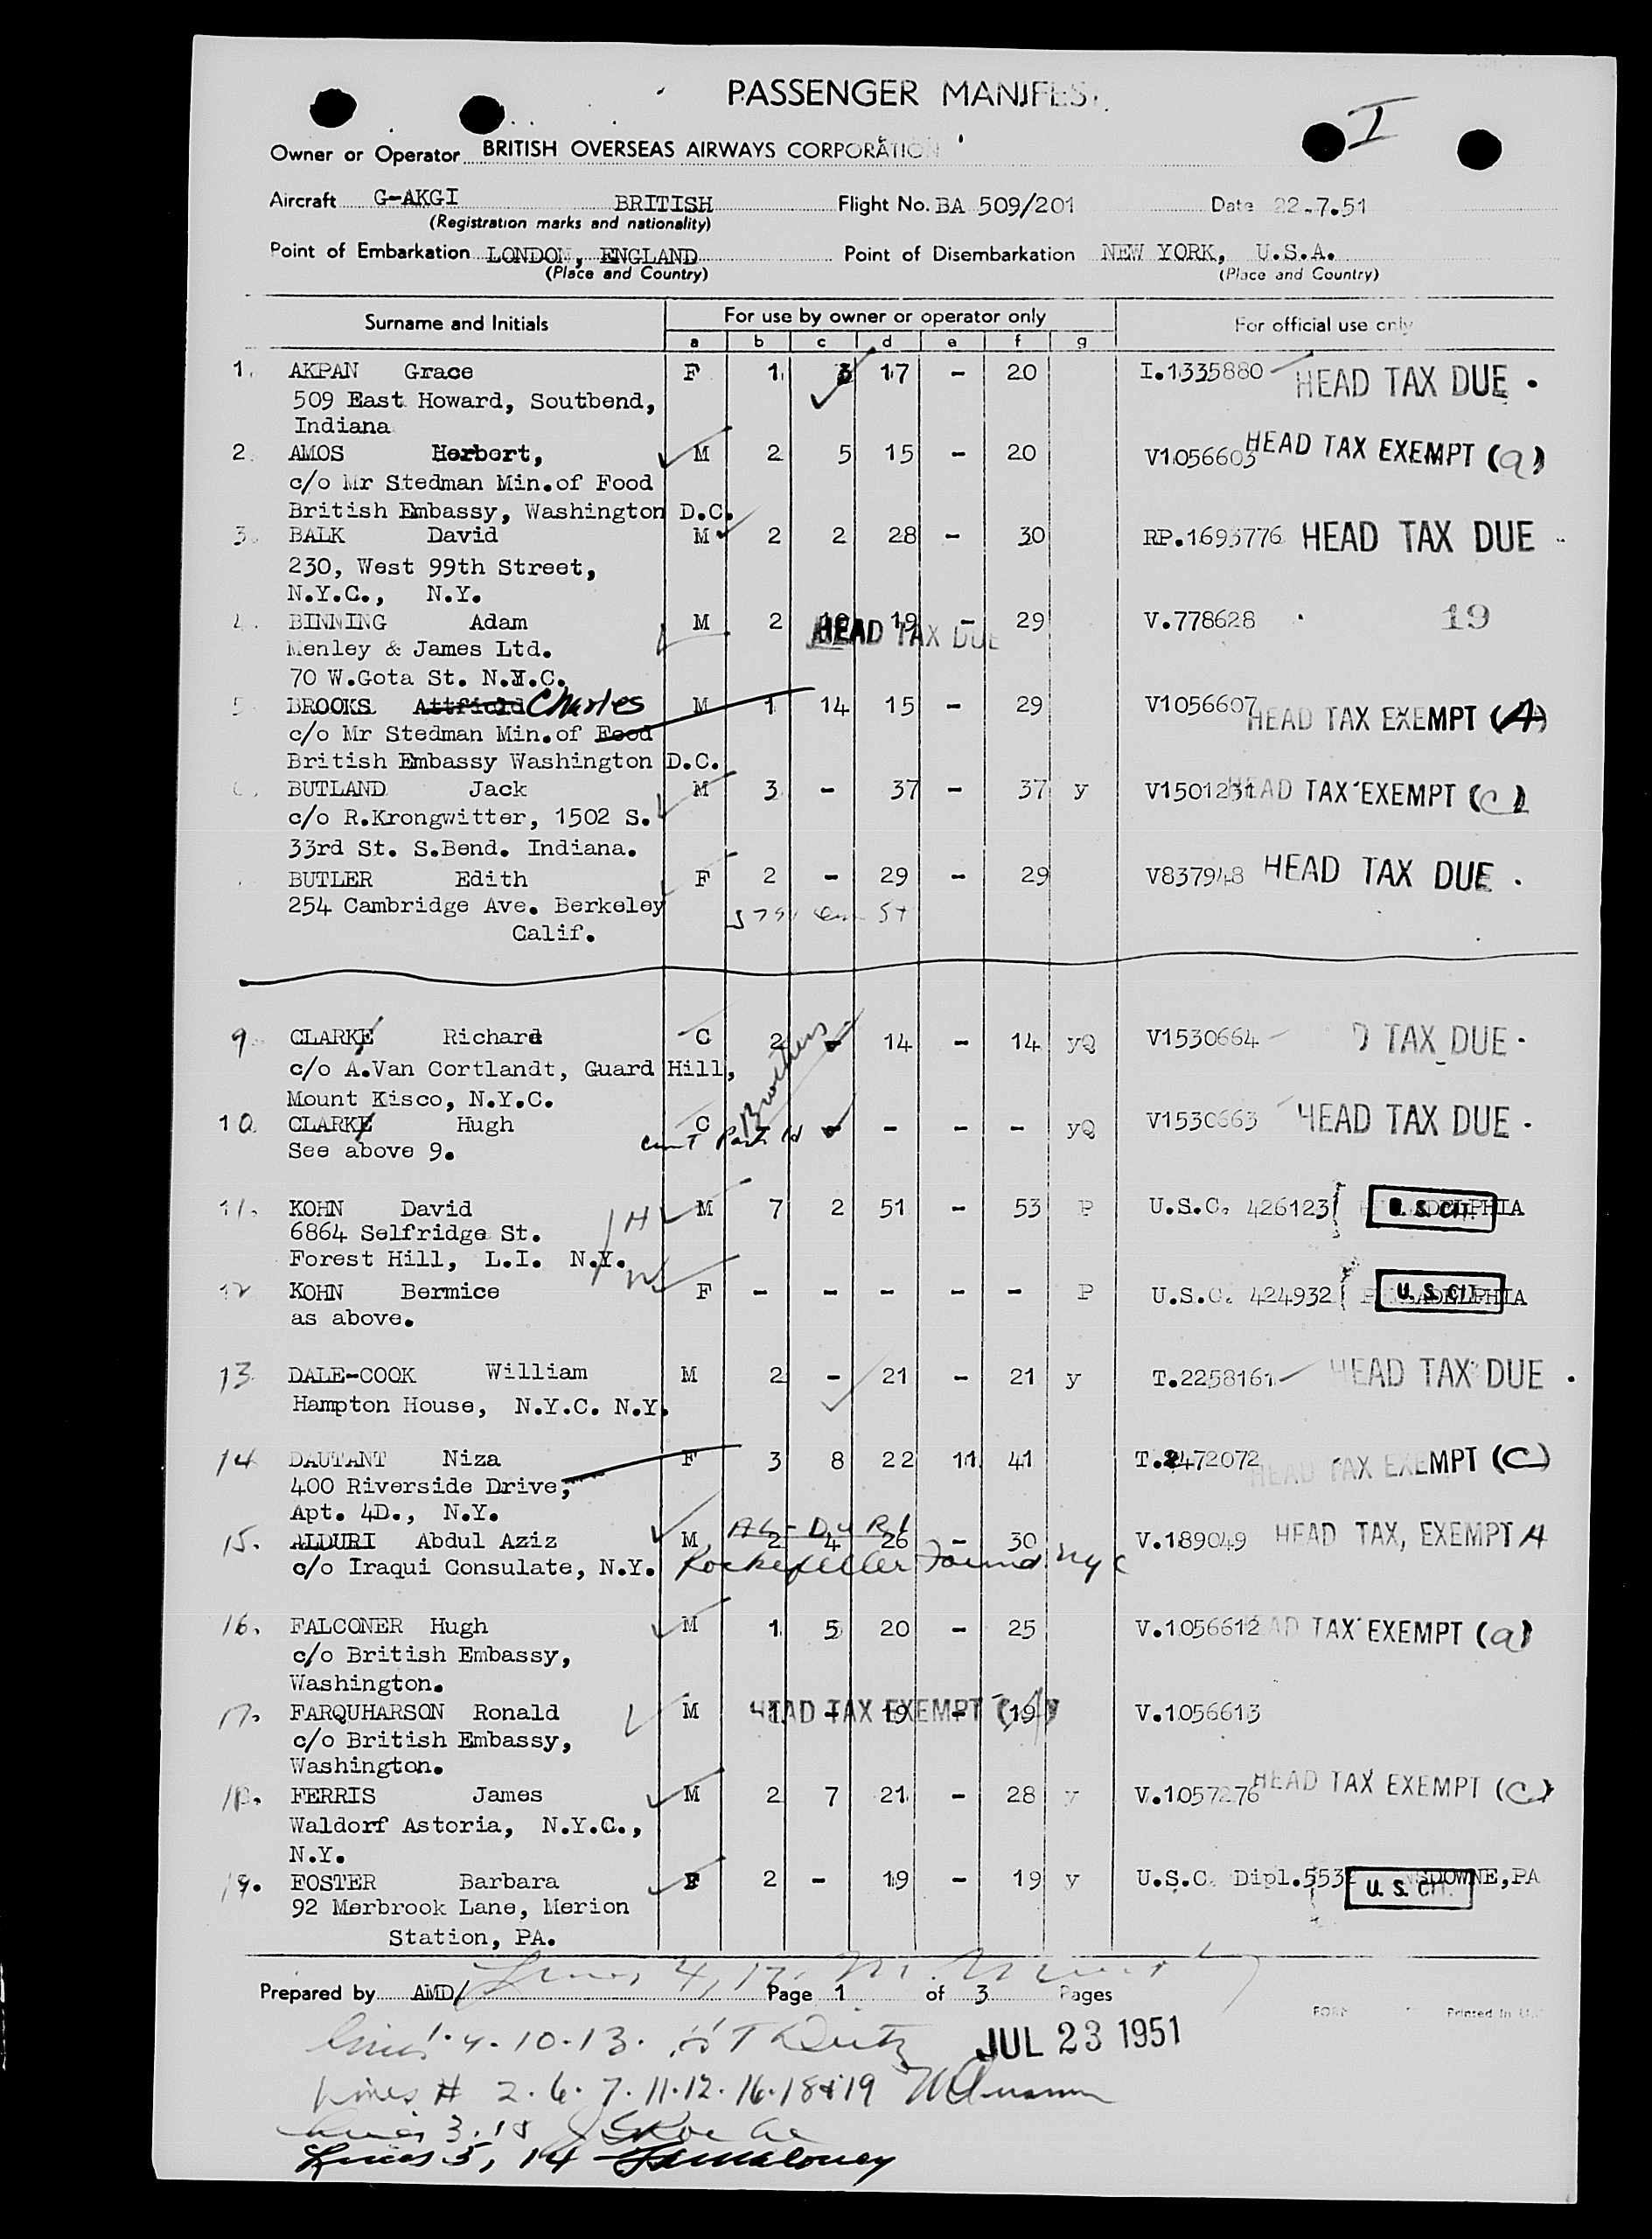 PASSENGER MANIFEST
I
Owner or Operator BRITISH OVERSEAS AIRWAYS CORPORATION
Aircraft G-AKGI BRITISH Flight No. BA 509/201 Date 22.7.51
(Registration marks and nationality)
Point of Embarkation LONDON, ENGLAND Point of Disembarkation NEW YORK, U.S.A.
(Place and Country) (Place and Country)
Surname and Initials For use by owner or operator only For official use only
a b c d e f g
1. AKPAN Grace F 1 3 17 - 20 I.1335880 HEAD TAX DUE .
509 East Howard, Soutbend,
Indiana
2. AMOS Herbert, M 2 5 15 - 20 V1056603 HEAD TAX EXEMPT (a)
c/o Mr Stedman Min.of Food
British Embassy, Washington D.C.
3. BALK David M 2 2 28 - 30 RP.1693776 HEAD TAX DUE
230, West 99th Street,
N.Y.C., N.Y.
4. BINNING Adam M 2 10 19 - 29 V.778628 19
HEAD TAX DUE
Menley & James Ltd.
70 W.Gota St. N.Y.C.
5. BROOKS Attfield Charles M 1 14 15 - 29 V1056607 HEAD TAX EXEMPT (A)
c/o Mr Stedman Min.of Food
British Embassy Washington D.C.
6. BUTLAND Jack M 3 - 37 - 37 y V1501231 HEAD TAX EXEMPT (c)
c/o R.Krongwitter, 1502 S.
33rd St. S.Bend. Indiana.
BUTLER Edith F 2 - 29 - 29 V837948 HEAD TAX DUE .
254 Cambridge Ave. Berkeley
Calif.
9. CLARKE Richard C 2 - 14 - 14 yQ V1530664 D TAX DUE .
c/o A.Van Cortlandt, Guard Hill,
Mount Kisco, N.Y.C.
Brothers
10. CLARKE Hugh C - - - - - yQ V1530663 HEAD TAX DUE .
See above 9.
11. KOHN David M 7 2 51 - 53 P U.S.C. 426123 PHILADELPHIA U. S. CIT.
6864 Selfridge St. H
Forest Hill, L.I. N.Y.
W
12 KOHN Bermice F - - - - - P U.S.C. 424932 PHILADELPHIA U. S. CIT.
as above.
13. DALE-COOK William M 2 - 21 - 21 y T.2258161 HEAD TAX DUE .
Hampton House, N.Y.C. N.Y.
14 DAUTANT Niza F 3 8 22 11 41 T.2472072 HEAD TAX EXEMPT (C)
400 Riverside Drive,
Apt. 4D., N.Y.
AL-DURI
15. ALDURI Abdul Aziz M 2 4 26 - 30 V.189049 HEAD TAX, EXEMPT A
c/o Iraqui Consulate, N.Y. Rockefeller Found. NYC
16. FALCONER Hugh M 1 5 20 - 25 V.1056612 HEAD TAX EXEMPT (a)
c/o British Embassy,
Washington.
17. FARQUHARSON Ronald M 1 - 19 - 19 V.1056613
HEAD TAX EXEMPT
c/o British Embassy,
Washington.
18. FERRIS James M 2 7 21 - 28 y V.1057276 HEAD TAX EXEMPT (C)
Waldorf Astoria, N.Y.C.,
N.Y.
19. FOSTER Barbara F 2 - 19 - 19 y U.S.C. Dipl.553 NSDOWNE,PA U. S. CIT.
92 Merbrook Lane, Merion
Station, PA.
Lines 4, 17.
Prepared by AMD/ Page 1 of 3 Pages
FORM Printed in
Lines 1. 9-10-13.
JUL 23 1951
Lines # 2. 6. 7. 11. 12. 16. 18 & 19
Lines 3. 15
Lines 5, 14